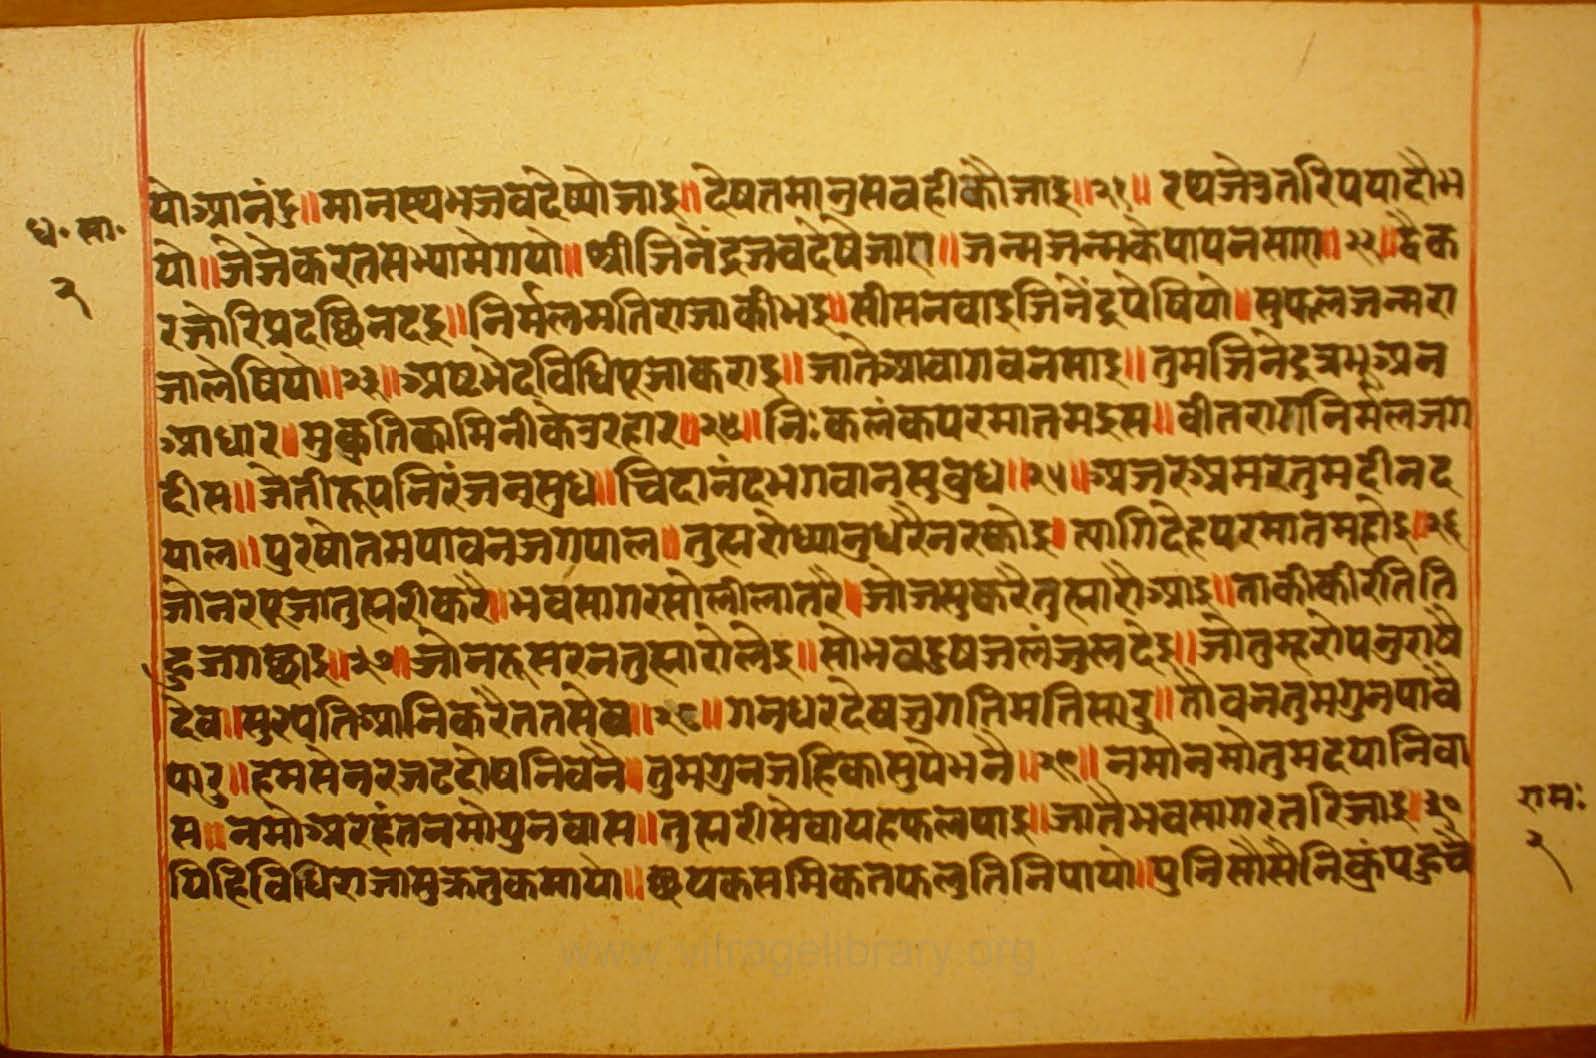 यो आनंद॥ मानस्थंभ जब देष्यो जाइ॥ देषत मानु सब ही कौ जाइ॥२१॥ रथ जे उतरि पयादौ भ
ध॰ सा॰
२
यो॥ जै जै करत सभा मे गयो॥ श्री जिनेंद्र जब देषे जाग॥ जन्म जन्म के पाप नसाग॥२२॥ द्वै क
र जोरि प्रदछिन दइ॥ निर्मल मति राजा की भइ॥ सीस नवाइ जिनेंद्र पेषियो॥ सुफल जन्म रा
जा लेषियो॥२३॥ अष्ट भेद विधि पूजा कराइ॥ जाते आवागवन साइ॥ तुम जिनेद्र त्रभू अन
आधार॥ मुक्रति कामिनी के उर हार॥२४॥ निःकलंक परमातम इस॥ वीतराग निर्मल जग
दीस॥ जोती रूप निरंजन सुध॥ चिदानंद भगवान सुबुध॥२५॥ अजर अमर तुम दीन द
याल॥ पुरषोतम पावन जगपाल॥ तुह्मरो ध्यानु धरै नर कोइ॥ त्यागि देह परमातम होइ॥२६
जो नर पूजा तुह्मरी करै॥ भवसागर सो लीला तरै॥ जो जसु करै तुह्मारौ आइ॥ ताकी कीरति ति
हु जग छाइ॥२७॥ जो नरू सरन तुह्मारो लेइ॥ सो भव दुष जलंजुल देइ॥ जो तुम्हरो पनु राषै
देव॥ सुरपति आनि करै तत सेव॥२८॥ गनधर देष जुगति मति सारु॥ तौ वन तुम गुन पावै
पारु॥ हम से नर जट दोष निवनै॥ तुम गुन जहि कासु पे भनै॥२९॥ नमो नमो तुम दया निवा
स॥ नमो अरहंत नमो गुनवास॥ तुह्मरी सेवा यह फल पाइ॥ जातै भवसागर तरि जाइ॥३०
यिहि विधि राजा सुक्रतु कमायो॥ छायक समिकत फलु तिनि पायो॥ पुनि सौ सैनिक्रं पहुचै
रामः
२
www.vitragelibrary.org